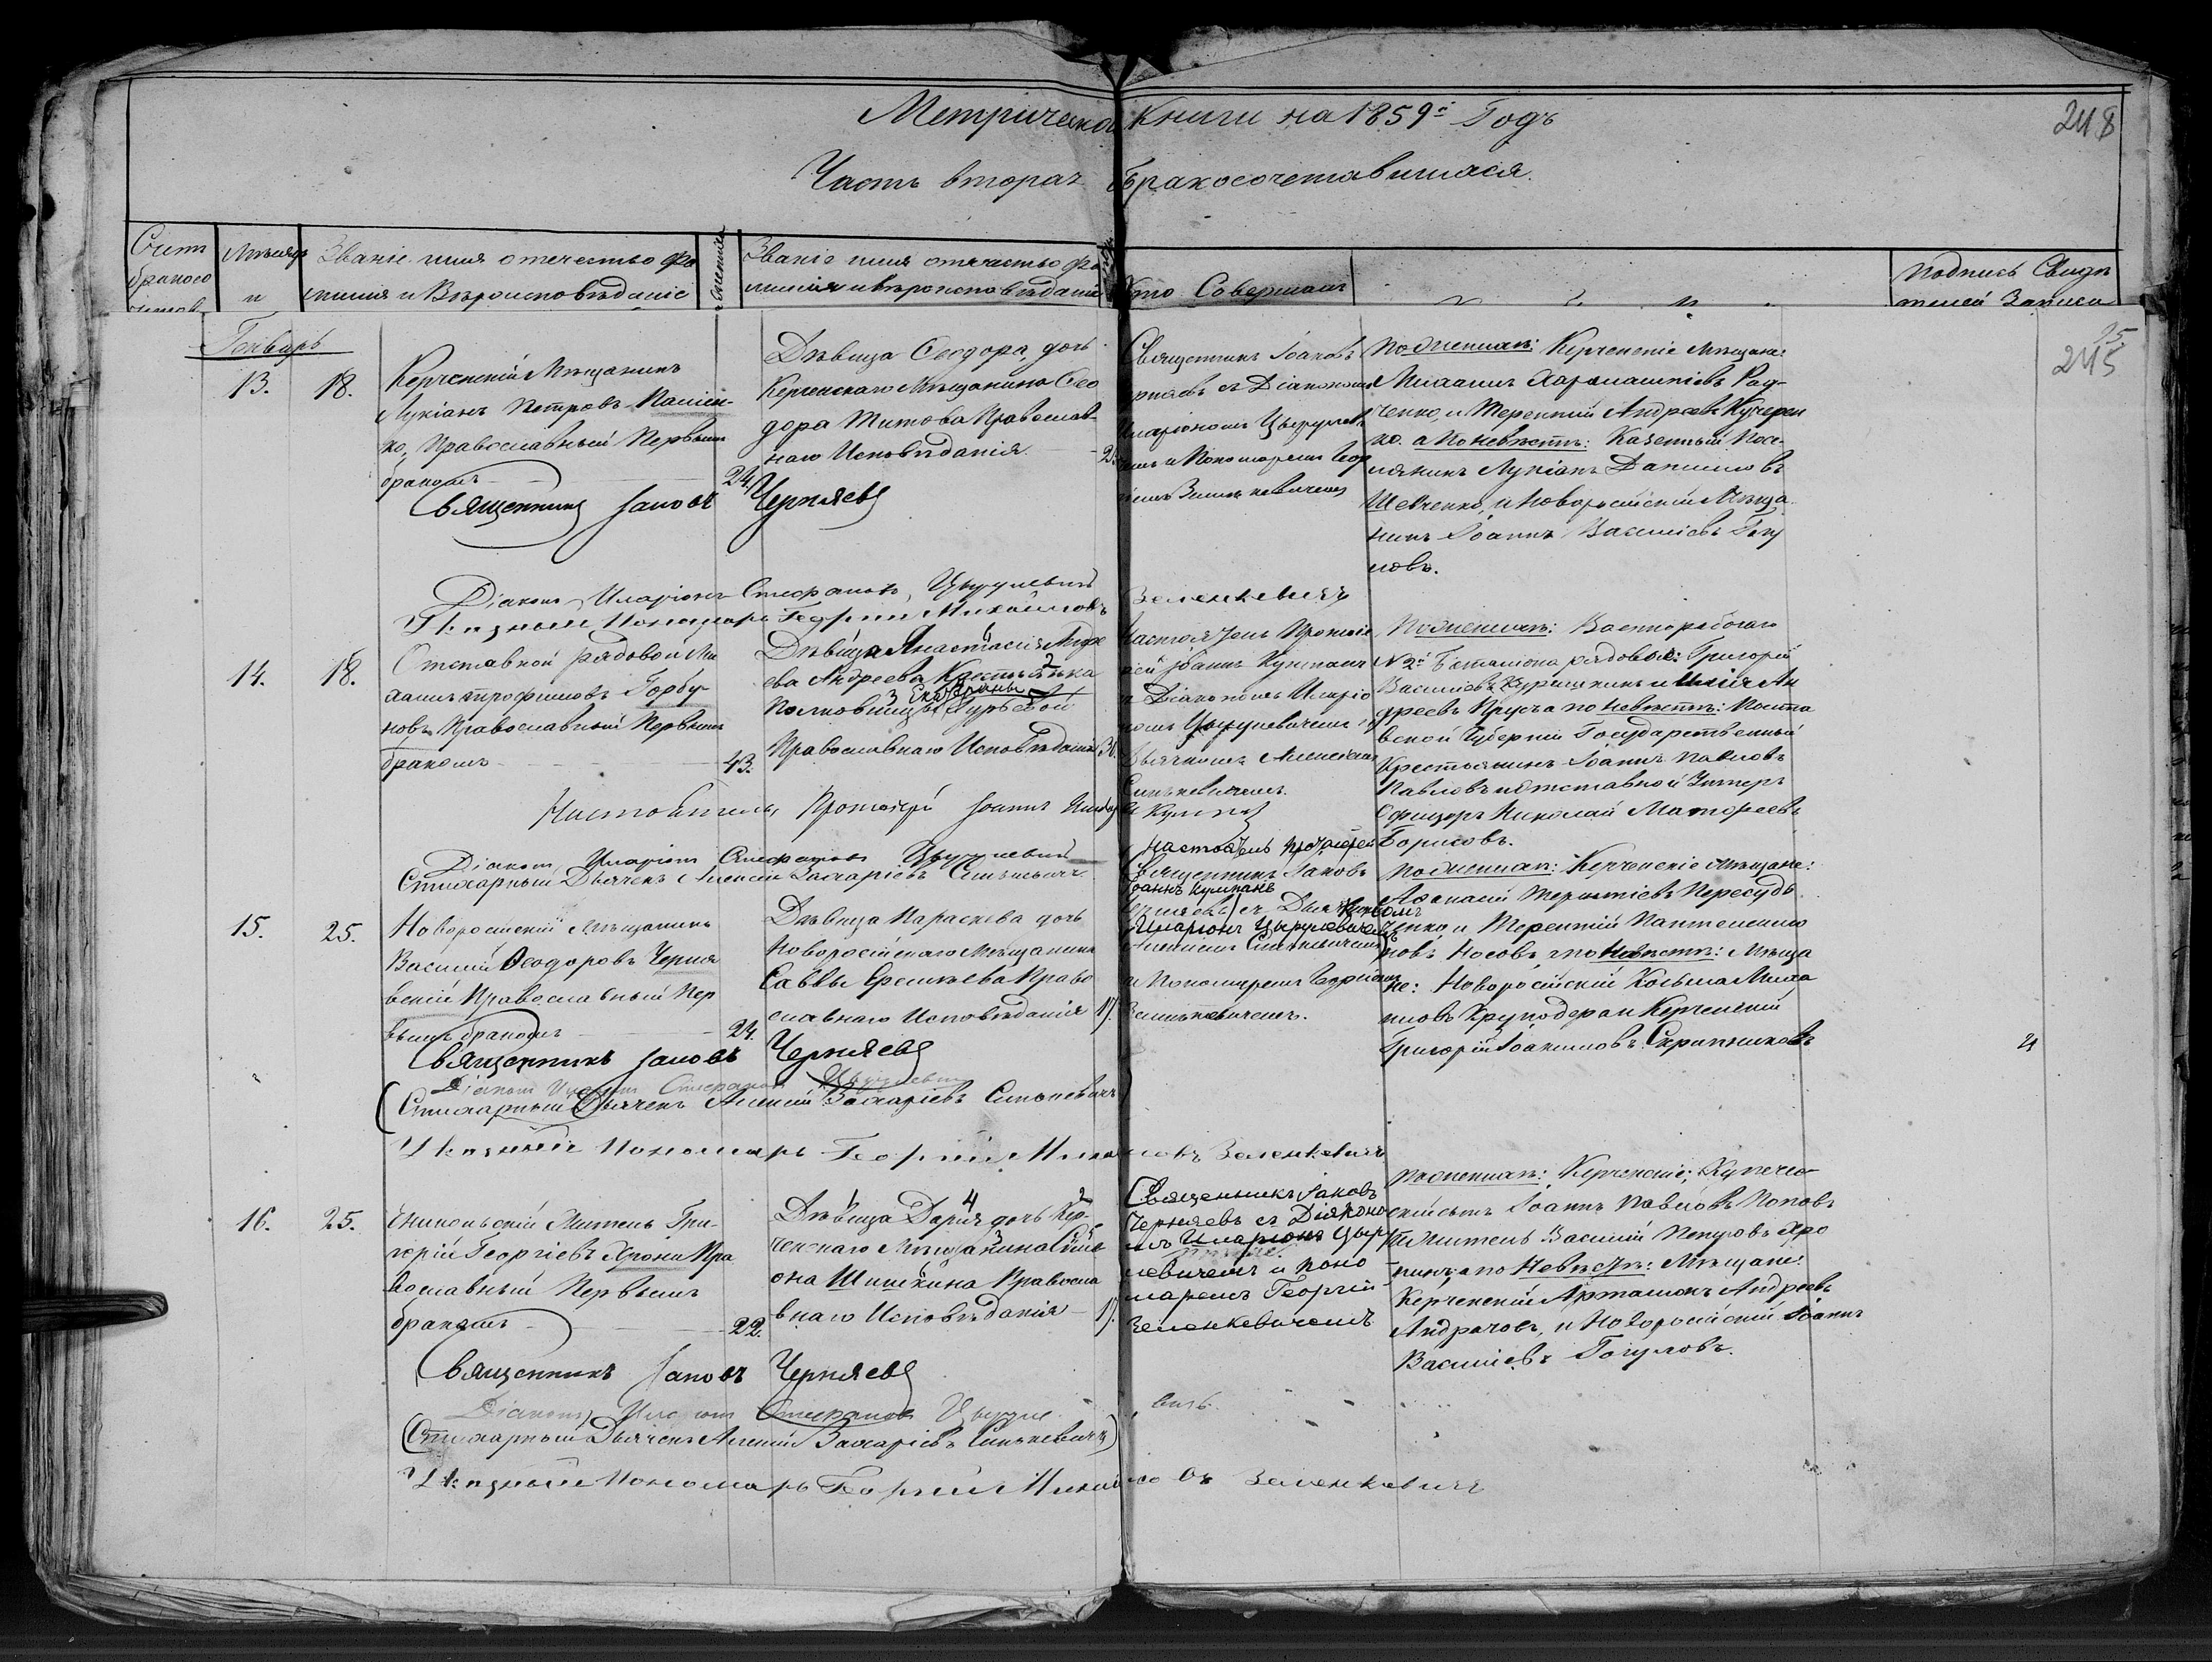 Метрической Книги на 1859й Годъ
248
Часть вторая Бракосочетавшiяся.
Счет
бракосо
Мѣсяцъ
и
Званiе имя отечество фа
милiя и Вѣроисповѣданiе
Званiе имя отечество фа
милiя и вѣроисповѣданiе
Кто Совершалъ
Подпись Свидѣ
телей Записи
Генварь
25.
245
13. 18.
Керченскiй Мѣщанинъ
Лукiанъ Петровъ
ко, Православный Первымъ
бракомъ
24.
Дѣвица Ѳеодора дочь
Керченскаго Мѣщанина Ѳео
дора Титова Православ-
наго Исповѣданiя
Священникъ Iаковъ
Чернявъ съ Дiакономъ
Иларiономъ
и Пономаремъ Геор
гiемъ Зеленкевичемъ
По Женихѣ: Керченскiе мѣщане:
Харлампiевъ Рад-
ченко, и Терентiй Андреевъ Кучерен
ко. а По невѣстѣ: Казенный Посе-
лянинъ Лукiанъ Даниловъ
Шевченко, и Новоросiйскiй Мѣща
нинъ Iоаннъ Василiевъ
ловъ.
Священникъ Iаковъ Черняевъ
Дiаконъ Иларiонъ Стефановъ Цыруневичъ
Указный Пономарь Георгiй Михайловъ Зеленкевичъ
14. 18.
Отставной рядовой Ми
хаилъ Трофимовъ Горбу-
новъ Православный Первымъ
бракомъ
43.
Дѣвица Анастасiя Андре
ева Андреева Крестьянка
Полковницы Екатерины Гурьевой
Православнаго Исповѣданiя 30.
Настоятель Протоiе
рей Iоаннъ Кумпанъ
съ Дiакономъ Иларiо
номъ Цыруневичемъ и
Дьячкомъ Алексiемъ
Синькевичемъ.
По Женихѣ: Военнорабочаго
№ 2й Баталiона рядовые: Григорiй
Василiевъ Курашкинъ и Илiя Ан
дреевъ Прусъ а по невѣстѣ: Полта
вской Губернiи Государственный
Крестьянинъ Iоаннъ Павловъ
Павловъ и Отставной Унтеръ
Офицеръ Николай Матфеевъ
Борисовъ.
Настоятель, Протоiерей Iоаннъ
Кумпанъ
Дiаконъ Иларiонъ Стефановъ Цыруневичъ
Стихарный Дьячекъ Алексiй Захарiевъ Синькевичъ
15. 25.
Новоросiйскiй Мѣщанинъ
Василiй Ѳеодоровъ Черня
вскiй Православный Пер
вымъ бракомъ
24.
Дѣвица Параскева дочь
Новоросiйскаго Мѣщанина
Саввы Православ
славнаго Исповѣданiя 17.
Настоятель Протоiерей
Священникъ Iаковъ
Iоаннъ Кумпанъ
Черняевъ съ Дiакономъ
Иларiонъ Цыруневичемъ
Алексiемъ Синькевичемъ
и Пономаремъ Георгiемъ
Зеленкевичемъ.
По Женихѣ: Керченскiе мѣщане:
Аѳанасiй Терентiевъ Пересуд
ченко и Терентiй Пантелеимо
новъ Носовъ а по Невѣстѣ: Мѣща
не: Новоросiйскiй Косьма Миха
иловъ Круподера и Керченскiй
Григорiй Iоакимовъ Скрипниковъ
Священникъ Iаковъ Черняевъ
Дiаконъ Иларiонъ Стефановъ Цыруневичъ
(Стихарный Дьячекъ Алексiй Захарiевъ Синькевичъ)
Указный Пономарь Георгiй Михайловъ Зеленкевичъ
16. 25.
Еникольскiй Житель Гри-
горiй Георгiевъ Хрони Пра
вославный Первымъ
бракомъ
22.
Дѣвица Дарiя дочь Кер-
ченскаго Мѣщанина Симе
она Шишкина Правосла
внаго Исповѣданiя 17.
Священникъ Iаковъ
Черняевъ съ Дiяконо
мъ Иларiонъ Цыру
невичемъ и поно
маремъ Георгiй
Зеленкевичемъ
По Женихѣ: Керченскiе; Купечес-
кiй сынъ Iоаннъ Павловъ Поповъ
и Житель Василiй Петровъ Хро
нинъ а по Невѣстѣ: Мѣщане:
Керченскiй Артамонъ Андреевъ
Андрачовъ, и Новоросiйскiй Iоаннъ
Василiевъ Гогуловъ.
Священникъ Iаковъ Черняевъ
Дiаконъ Иларiонъ Стефановъ Цыруне вичъ.
(Стихарный Дьячекъ Алексiй Захарiевъ Синькевичъ)
Указный Пономарь Георгiй Михайловъ Зеленкевичъ